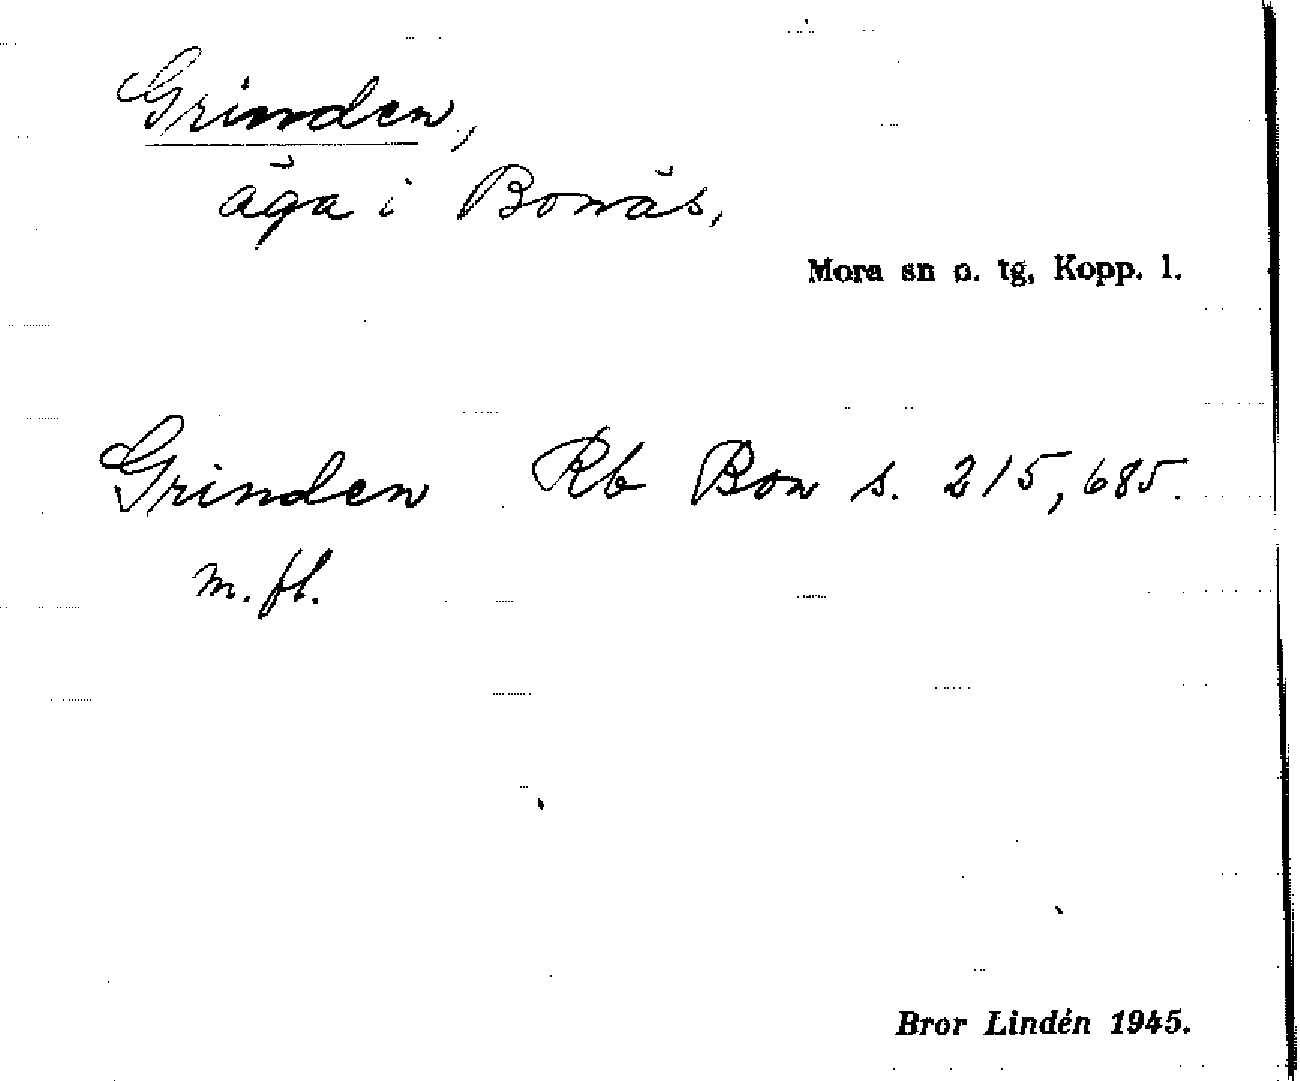 Grinden,
äga i Bonäs,
Mora sn o. tg, Kopp. l.
Grinden Rb Bon s. 215, 685.
m. fl.
Bror Lindén 1945.